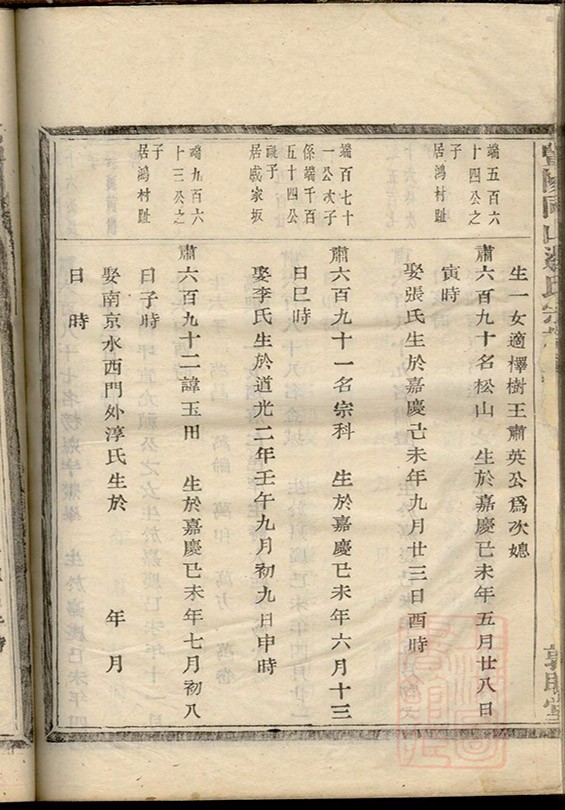 生一女適檡樹王肅英公爲次媳
端五百六
十四公之
子
居鴻村趾
肅六百九十名松山　生於嘉慶己未年五月廿八日
寅時
娶張氏生於嘉慶己未年九月廿三日酉時
端百七十
一公次子
係端千百
五十四公
祧子
居戚家坂
肅六百九十一名宗科　生於嘉慶己未年六月十三
日巳時
娶李氏生於道光二年壬午九月初九日申時
端九百六
十三公之
子
居鴻村趾
肅六百九十二諱玉田　生於嘉慶己未年七月初八
日子時
娶南京水西門外淳氏生於　年　月
日　時